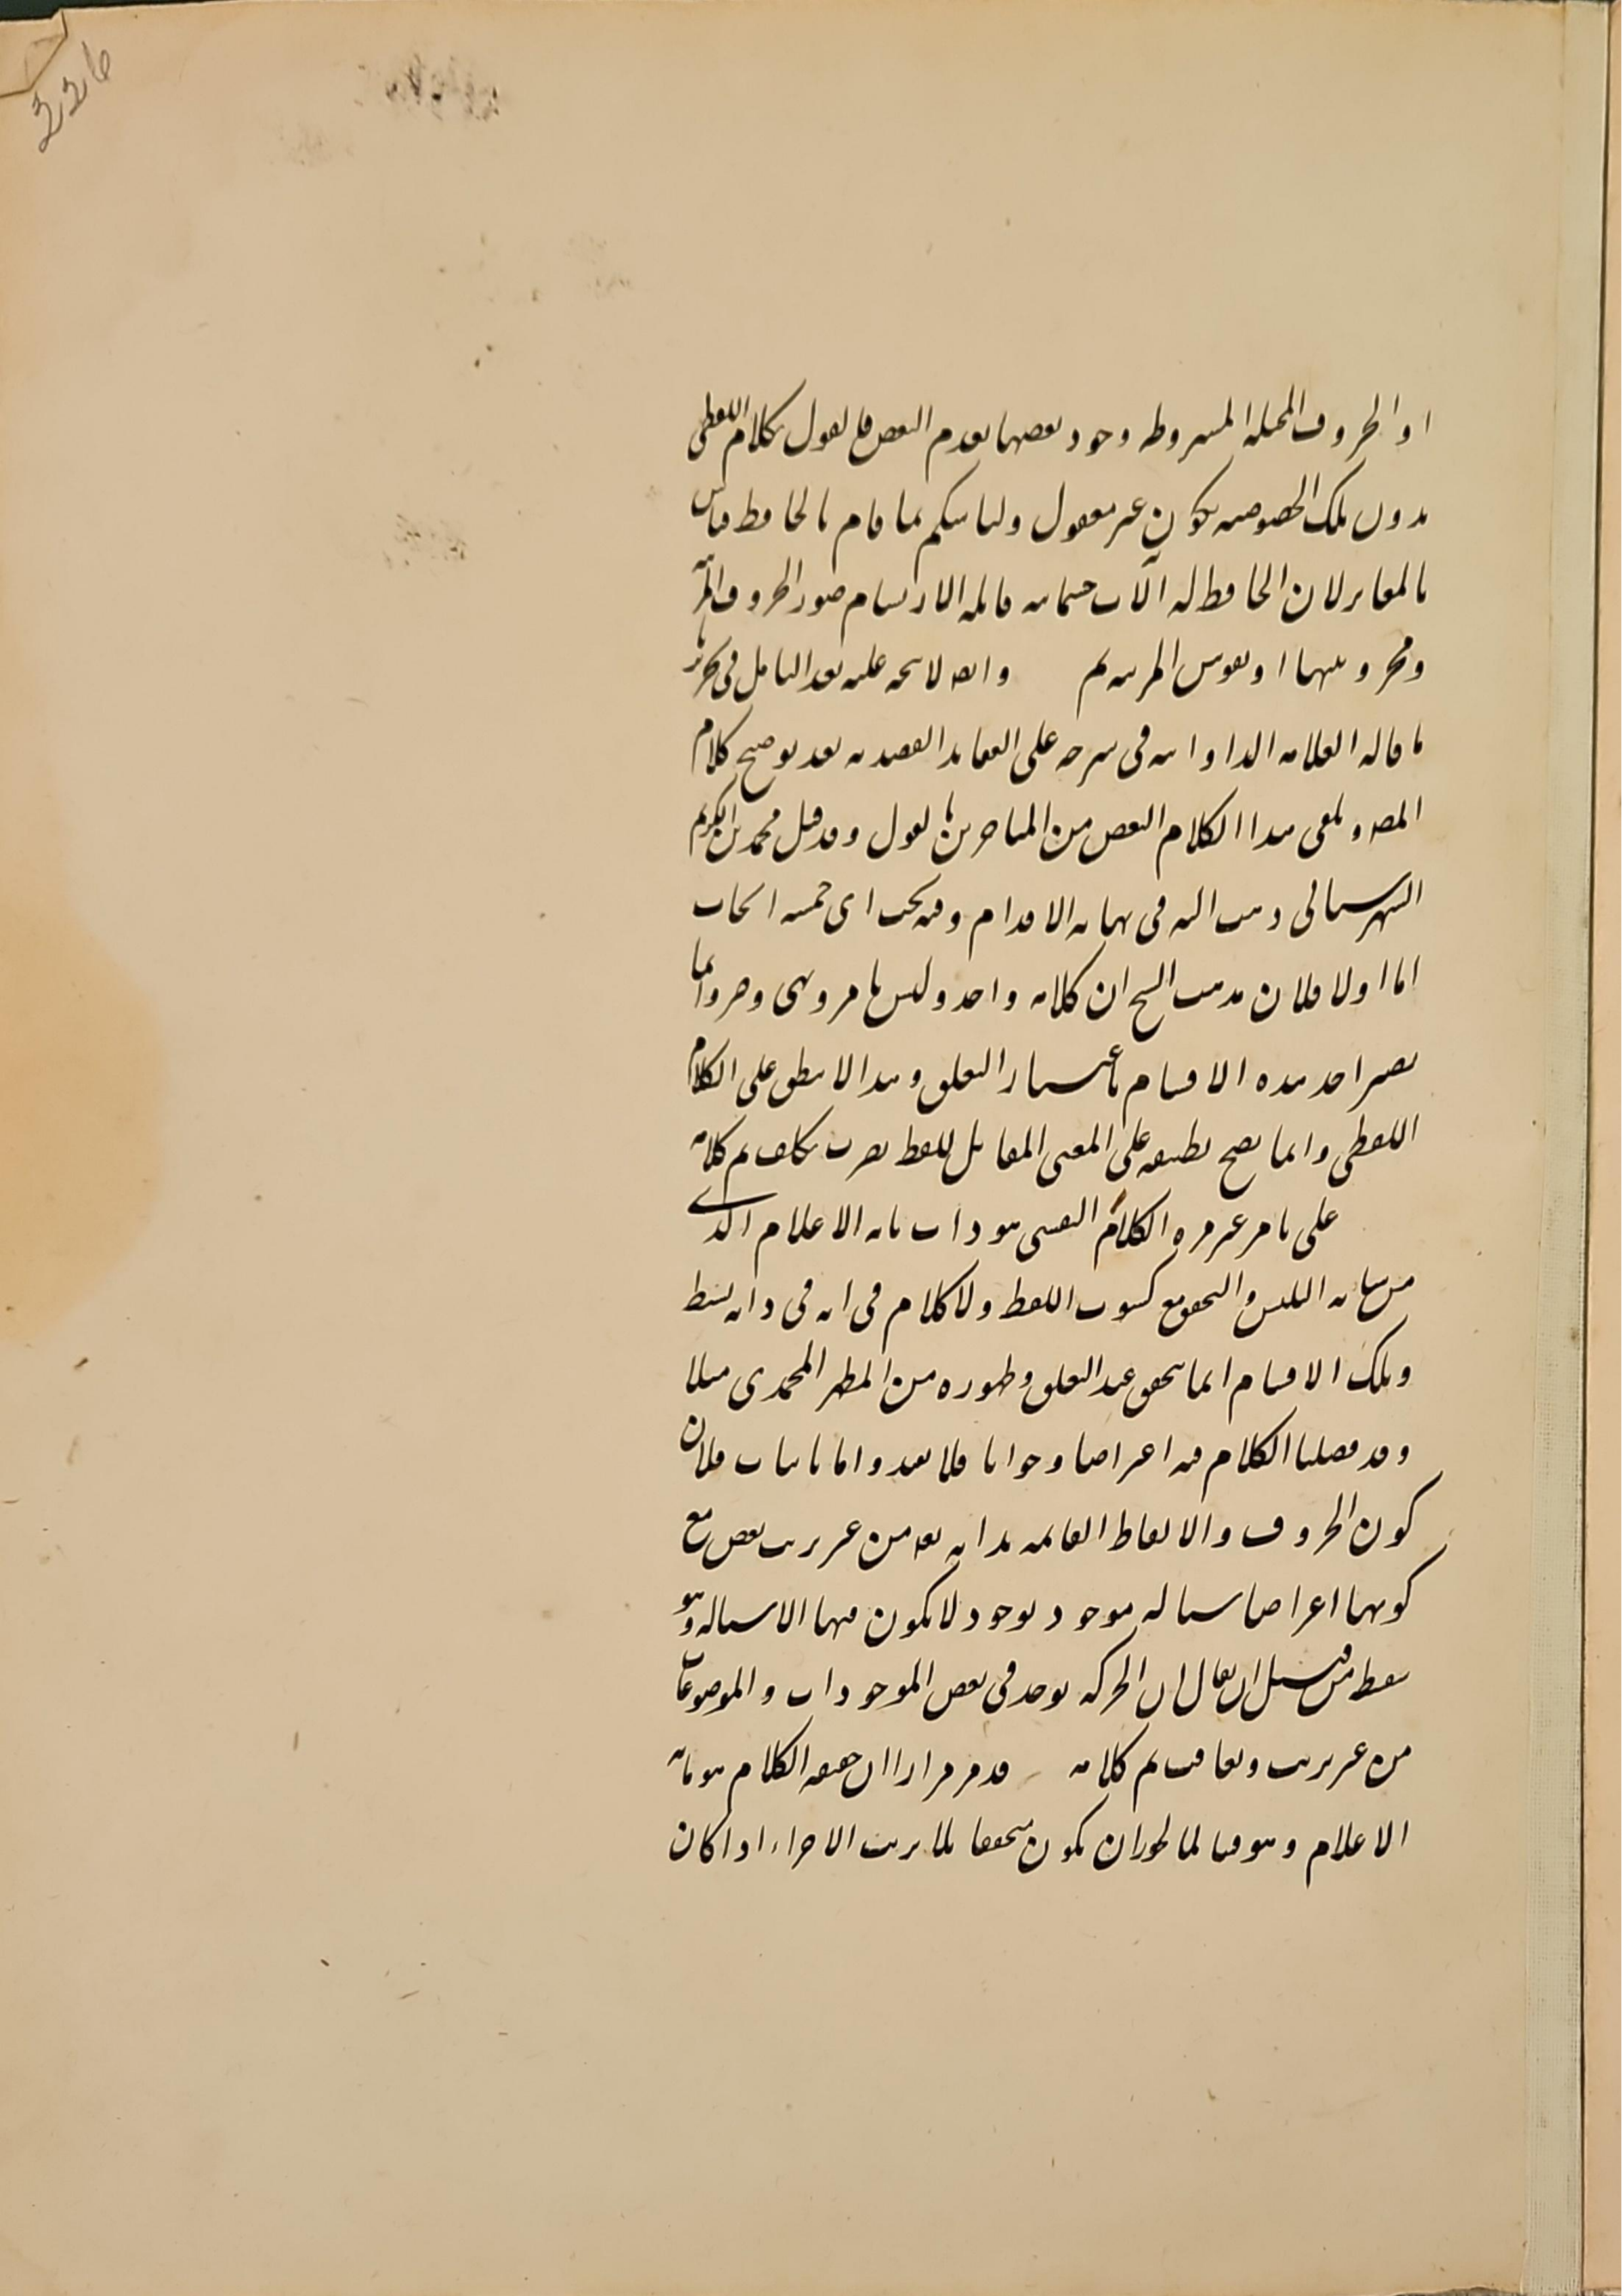 226
او الحروف المخيلة المشروطة وجود بعضها بعدم البعض فالقول بكلام اللفظي
بدون تلك الخصوصية يكون غير معقول ولنا سكم بما قام بالحافظ قياس
بالمغاير لان الحافظ له الآت جسمانية قابلة الارتسام صور الحروف
او نفوس المرتسم وانه لا يتجه عليه بعد التأمل في
ما قاله العلامة الدواني في شرحه على العقايد العضدية بعد توضيح كلام
المص وتلقى هذا الكلام البعض من المتاخرين بالقبول وقد قيل محمد بن الكريم
الشهرستاني ذهب اليه في نهاية الاقدام وفيه بحث اي خمسة ابحاث
اما اولا فلان مذهب الشيخ ان كلامه واحد وليس بامر ونهي وخبر وانما
يصير احد هذه الاقسام باعتبار التعلق وهذا لا ينطبق على الكلام
اللفظي وانما يصح تطبيقه على المعنى المقابل للفظ بضرب تكلف تم كلامه
على ما مر غير مرة الكلام النفسي هو ذات مابه الاعلام الذي
من شانه التلبس والتحقق مع كسوت اللفظ ولا كلام في انه في ذاته بسيط
وتلك الاقسام انما يتحقق عند التعلق وظهوره من المظهر المحمدي مثلا
وقد فصلنا الكلام فيه اعتراضا وجوابا فلا نعيد واما ثانيا فلان
كون الحروف والالفاظ القائمة بذاته تعه من غير ترتب بعض مع
كونها اعراضا سيالة موجود بوجود لا يكون فيها الا سيالة وهو
سفسط من قبيل ان يقال ان الحركة توجد في بعض الموجودات والموضوعات
من غير ترتب وتعاقب تم كلامه قد مر مرارا ان حقيقة الكلام هو مابه
الاعلام وهو قيا لما يجوز ان يكون متحققا بلا ترتب الاجزاء اذا كان